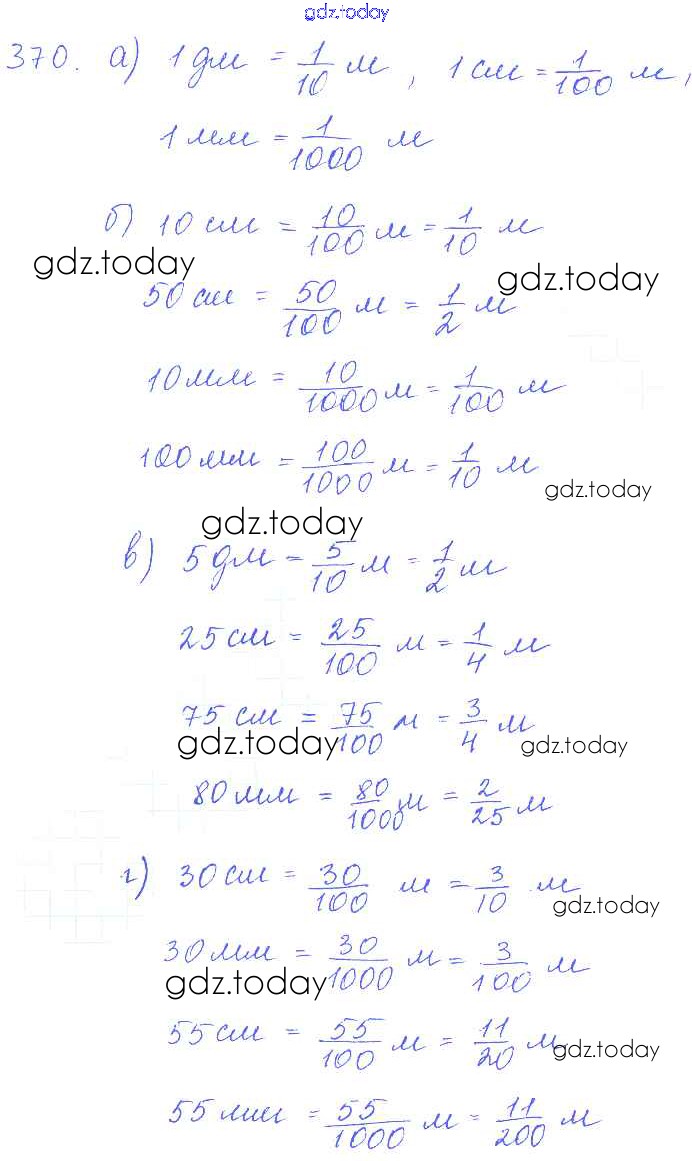 gdz.today
370. а) 1 дм = 1/10 м, 1 см = 1/100 м,
1 мм = 1/1000 м
б) 10 см = 10/100 м = 1/10 м
gdz.today
gdz.today
50 см = 50/100 м = 1/2 м
10 мм = 10/1000 м = 1/100 м
100 мм = 100/1000 м = 1/10 м
gdz.today
gdz.today
в) 5 дм = 5/10 м = 1/2 м
25 см = 25/100 м = 1/4 м
75 см = 75/100 м = 3/4 м
gdz.today
gdz.today
80 мм = 80/1000 м = 2/25 м
г) 30 см = 30/100 м = 3/10 м
gdz.today
30 мм = 30/1000 м = 3/100 м
gdz.today
55 см = 55/100 м = 11/20 м
gdz.today
55 мм = 55/1000 м = 11/200 м